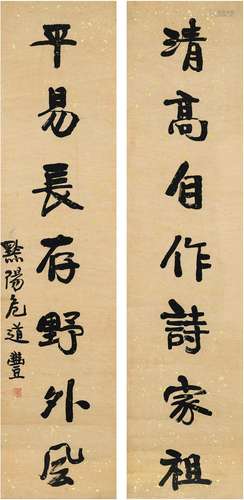 清高自作詩家祖
平易長存野外風
黔陽危道豐